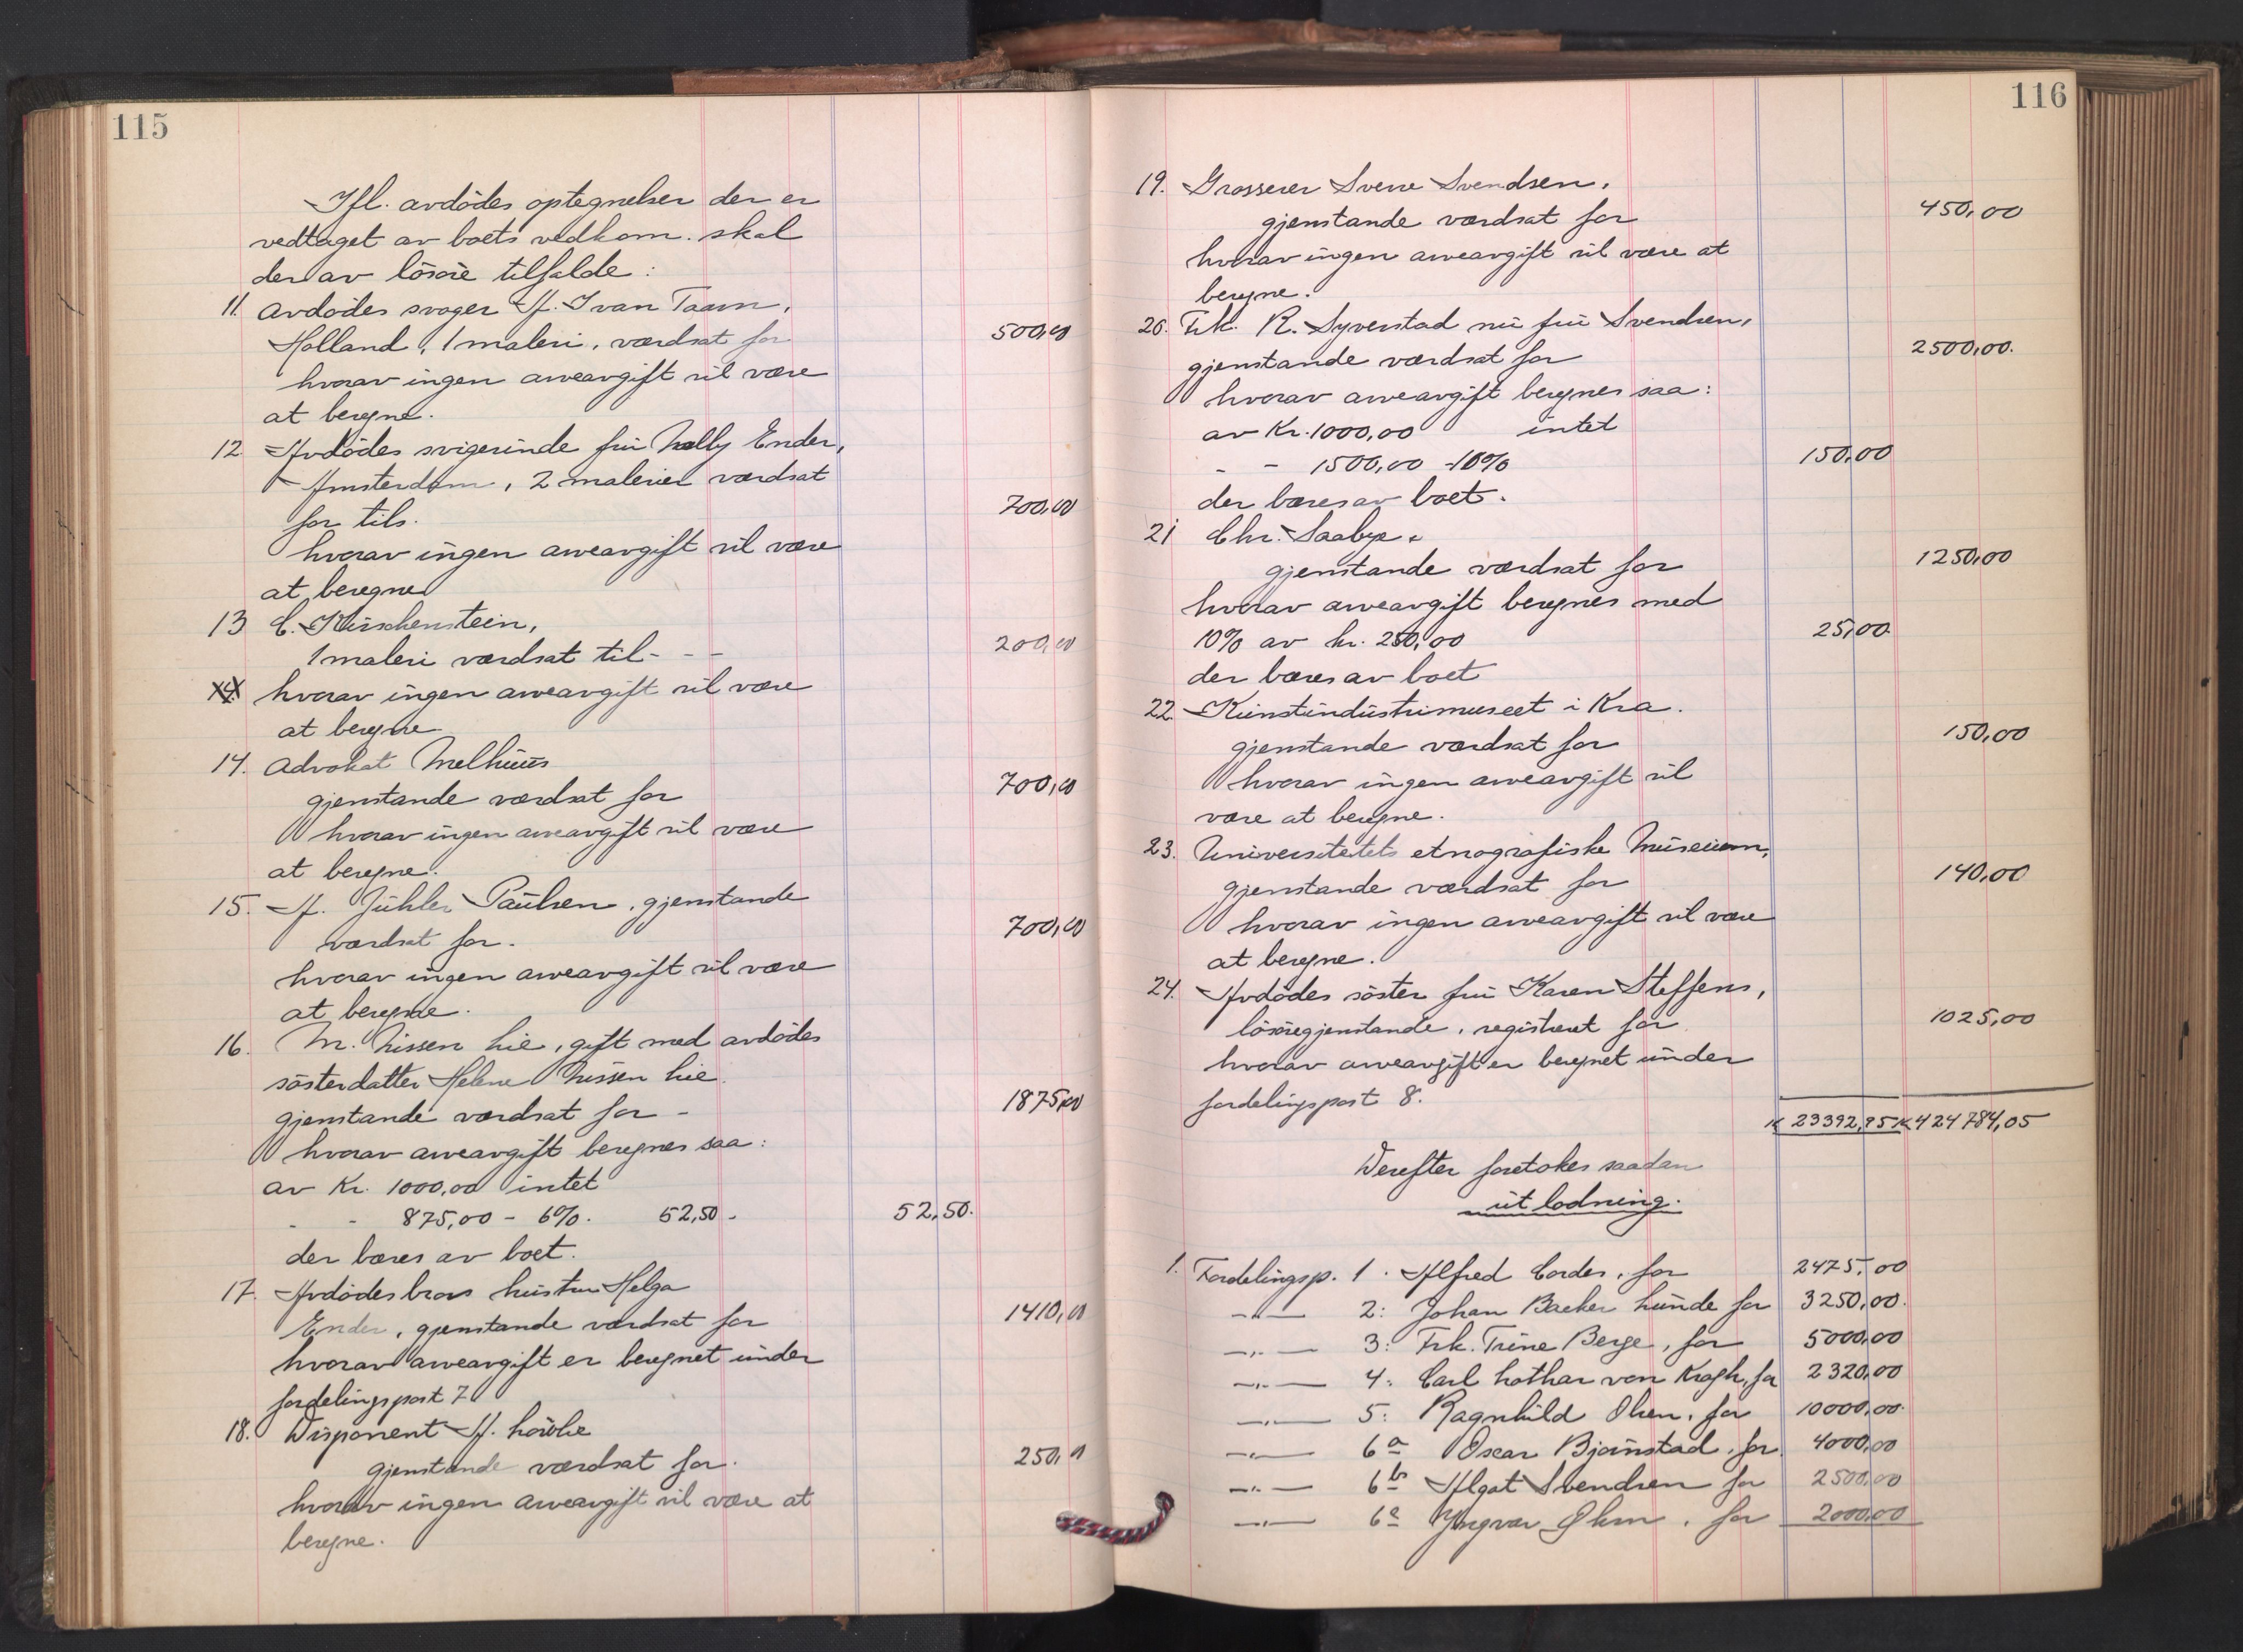 115
Ifl. avdödes optegnelser der er
vedtaget av boets vedkom. skal
der av lösöre tilfalde:
11. Avdödes svoger H. I van Taam,
Holland, 1 maleri, værdsat for 500,00
hvorav ingen arveavgift vil være
at beregne.
12 Avdödes svigerinde frü Nelly Ender,
Amsterdam, 2 malerier værdsat
for tils. 700,00
hvorav ingen arveavgift vil være
at beregne
13 C. Kirschenstein,
1 maleri værdsat til - - - 200,00
hvorav ingen arveavgift vil være
at beregne
14. Advokat Melhüüs
gjenstande værdsat for 700,00
hvorav ingen arveavgift vil være
at beregne.
15. H. Jühler Paülsen, gjenstande
værdsat for. 700,00
hvorav ingen arveavgift vil være
at beregne.
16. M. Nissen Lie, gift med avdödes
sösterdatter Helene Nissen Lie
gjenstande værdsat for - 1875,00
hvorav arveavgift beregnes saa:
av Kr. 1000,00 intet
- - 875,00 - 6%. 52,50 - 52,50.
der bæres av boet.
17. Avdödes brors hüstrü Helga
Ender, gjenstande værdsat for 1410,00
hvorav arveavgift er beregnet ünder
fordelingspost 7
18. Disponent H.
gjenstande værdsat for. 250,00
hvorav ingen arveavgift vil være at
beregne.
116
19. Grosserer Sverre Svendsen,
gjenstande værdsat for 450,00
hvorav ingen arveavgift vil være at
beregne.
20. Frk. R. Syverstad nü frü Svendsen,
gjenstande værdsat for 2500,00.
hvorav arveavgift beregnes saa:
av Kr. 1000,00 intet
- - 1500,00 - 10% 150,00
der bæres av boet.
21 Chr. Saabye.
gjenstande værdsat for 1250,00
hvorav arveavgift beregnes med
10% av kr. 250,00 25,00
der bæres av boet
22. Künstindüstrimuseet i Kra.
gjenstande værdsat for 150,00
hvorav ingen arveavgift vil
være at beregne.
23. Universitetets etnografiske Müseüm,
gjenstande værdsat for 140,00
hvorav ingen arveavgift vil være
at beregne.
24. Avdödes söster frü Karen Steffens,
lösöregjenstande, registreret for 1025,00
hvorav arveavgift er beregnet ünder
fordelingspost 8.
K 23392,95 K 424784,05
Derefter foretokes saadan
ütlodning.
1. Fordelingsp. 1. Alfred Cordes, for 2475,00
—"— 2: Johan Backer Lünde for 3250,00.
—"— 3: Frk. Trine Berge, for 5000,00
—"— 4: Carl Lothar von Krogh, for 2320,00
—"— 5: Ragnhild Olsen, for 10000,00.
—"— 6a Oscar Bjørnstad, for 4000,00
—"— 6b Algot Svendsen for 2500,00
—"— 6c Yngvar Olsen, for 2000,00